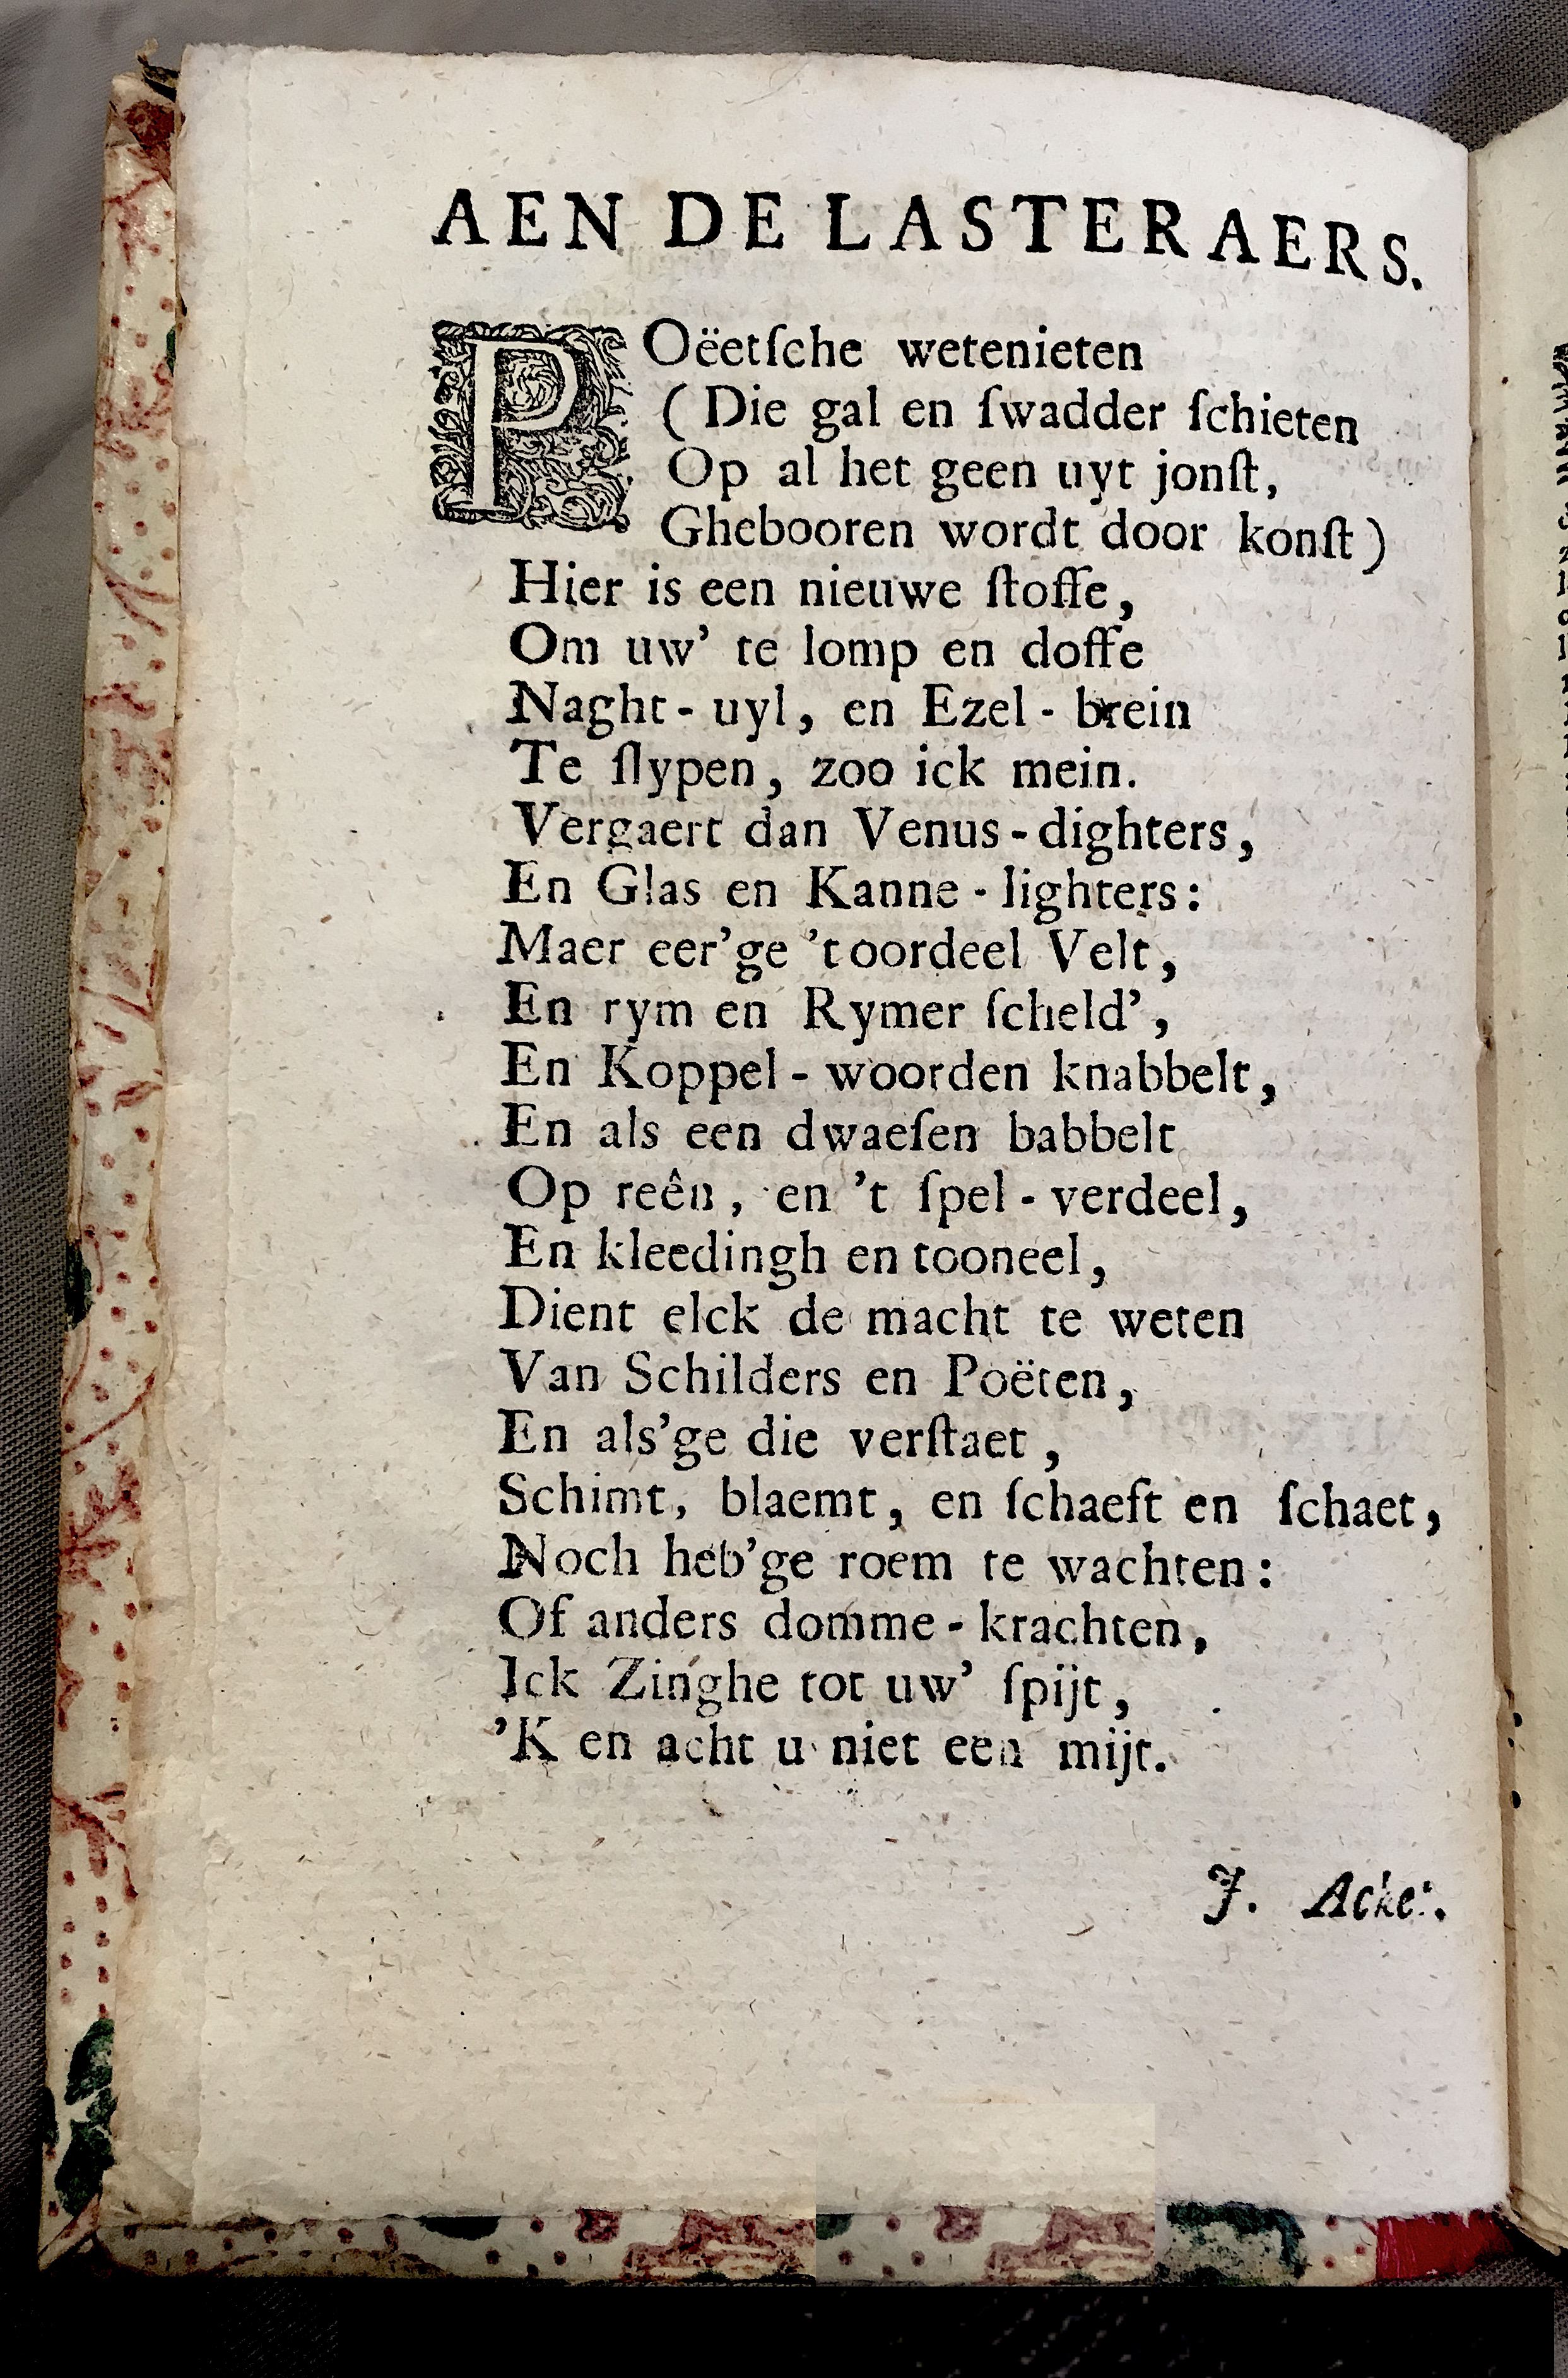 AEN DE LASTERAERS.
POëetſche wetenieten
( Die gal en ſwadder ſchieten
Op al het geen uyt jonſt,
Ghebooren wordt door konſt )
Hier is een nieuwe ſtoffe,
Om uw' te lomp en doffe
Naght-uyl, en Ezel-brein
Te ſlypen, zoo ick mein.
Vergaert dan Venus-dighters,
En Glas en Kanne-lighters:
Maer eer'ge 't oordeel Velt,
En rym en Rymer ſcheld',
En Koppel-woorden knabbelt,
En als een dwaeſen babbelt
Op reên, en 't ſpel-verdeel,
En kleedingh en tooneel,
Dient elck de macht te weten
Van Schilders en Poëten,
En als'ge die verſtaet,
Schimt, blaemt, en ſchaeft en ſchaet,
Noch heb'ge roem te wachten:
Of anders domme-krachten,
Ick Zinghe tot uw' ſpijt,
'K en acht u niet een mijt.
J.